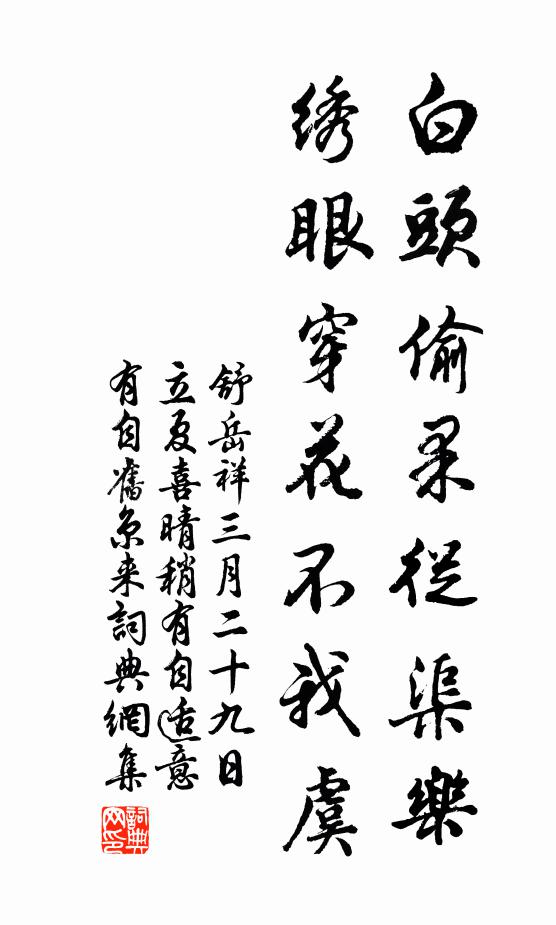 白頭偷果從渠樂
绣眼穿花不我虞
舒岳祥三月二十九日
立夏喜晴稍有自适意
有自舊京来詞典網集
詞典
网印